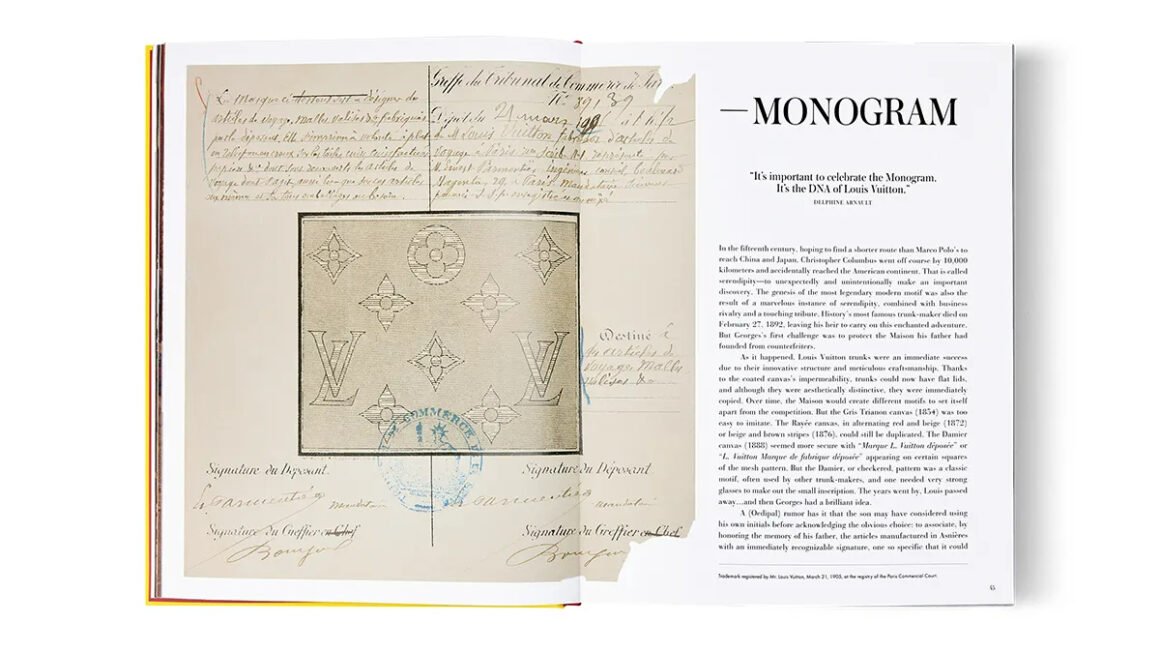 Greffe du Tribunal de Commerce de
No. 89139
La Marque ci dessous est à désigner des
articles de voyage, malles valises de fabriqués
Dépôt du 21 mars
de M. Louis Vuitton, fabricant d'articles de
voyage à Paris
M. Ernest
Magenta, 29, à Paris, mandataire
LV
LV
Destiné à
des articles de
voyages Malles
valises &a
COMMERCE
Signature du Déposant.
mandataire
Signature du Déposant
mandataire
Signature du Greffier en Chef
Signature du Greffier en Chef
—MONOGRAM
“It’s important to celebrate the Monogram.
It’s the DNA of Louis Vuitton.”
DELPHINE ARNAULT
In the fifteenth century, hoping to find a shorter route than Marco Polo’s to
reach China and Japan, Christopher Columbus went off course by 10,000
kilometers and accidentally reached the American continent. That is called
serendipity—to unexpectedly and unintentionally make an important
discovery. The genesis of the most legendary modern motif was also the
result of a marvelous instance of serendipity, combined with business
rivalry and a touching tribute. History’s most famous trunk-maker died on
February 27, 1892, leaving his heir to carry on this enchanted adventure.
But Georges’s first challenge was to protect the Maison his father had
founded from counterfeiters.
As it happened, Louis Vuitton trunks were an immediate success
due to their innovative structure and meticulous craftsmanship. Thanks
to the coated canvas’s impermeability, trunks could now have flat lids,
and although they were aesthetically distinctive, they were immediately
copied. Over time, the Maison would create different motifs to set itself
apart from the competition. But the Gris Trianon canvas (1854) was too
easy to imitate. The Rayée canvas, in alternating red and beige (1872)
or beige and brown stripes (1876), could still be duplicated. The Damier
canvas (1888) seemed more secure with “Marque L. Vuitton déposée” or
“L. Vuitton Marque de fabrique déposée” appearing on certain squares
of the mesh pattern. But the Damier, or checkered, pattern was a classic
motif, often used by other trunk-makers, and one needed very strong
glasses to make out the small inscription. The years went by, Louis passed
away...and then Georges had a brilliant idea.
A (Oedipal) rumor has it that the son may have considered using
his own initials before acknowledging the obvious choice: to associate, by
honoring the memory of his father, the articles manufactured in Asnières
with an immediately recognizable signature, one so specific that it could
Trademark registered by Mr. Louis Vuitton, March 21, 1905, at the registry of the Paris Commercial Court.
45